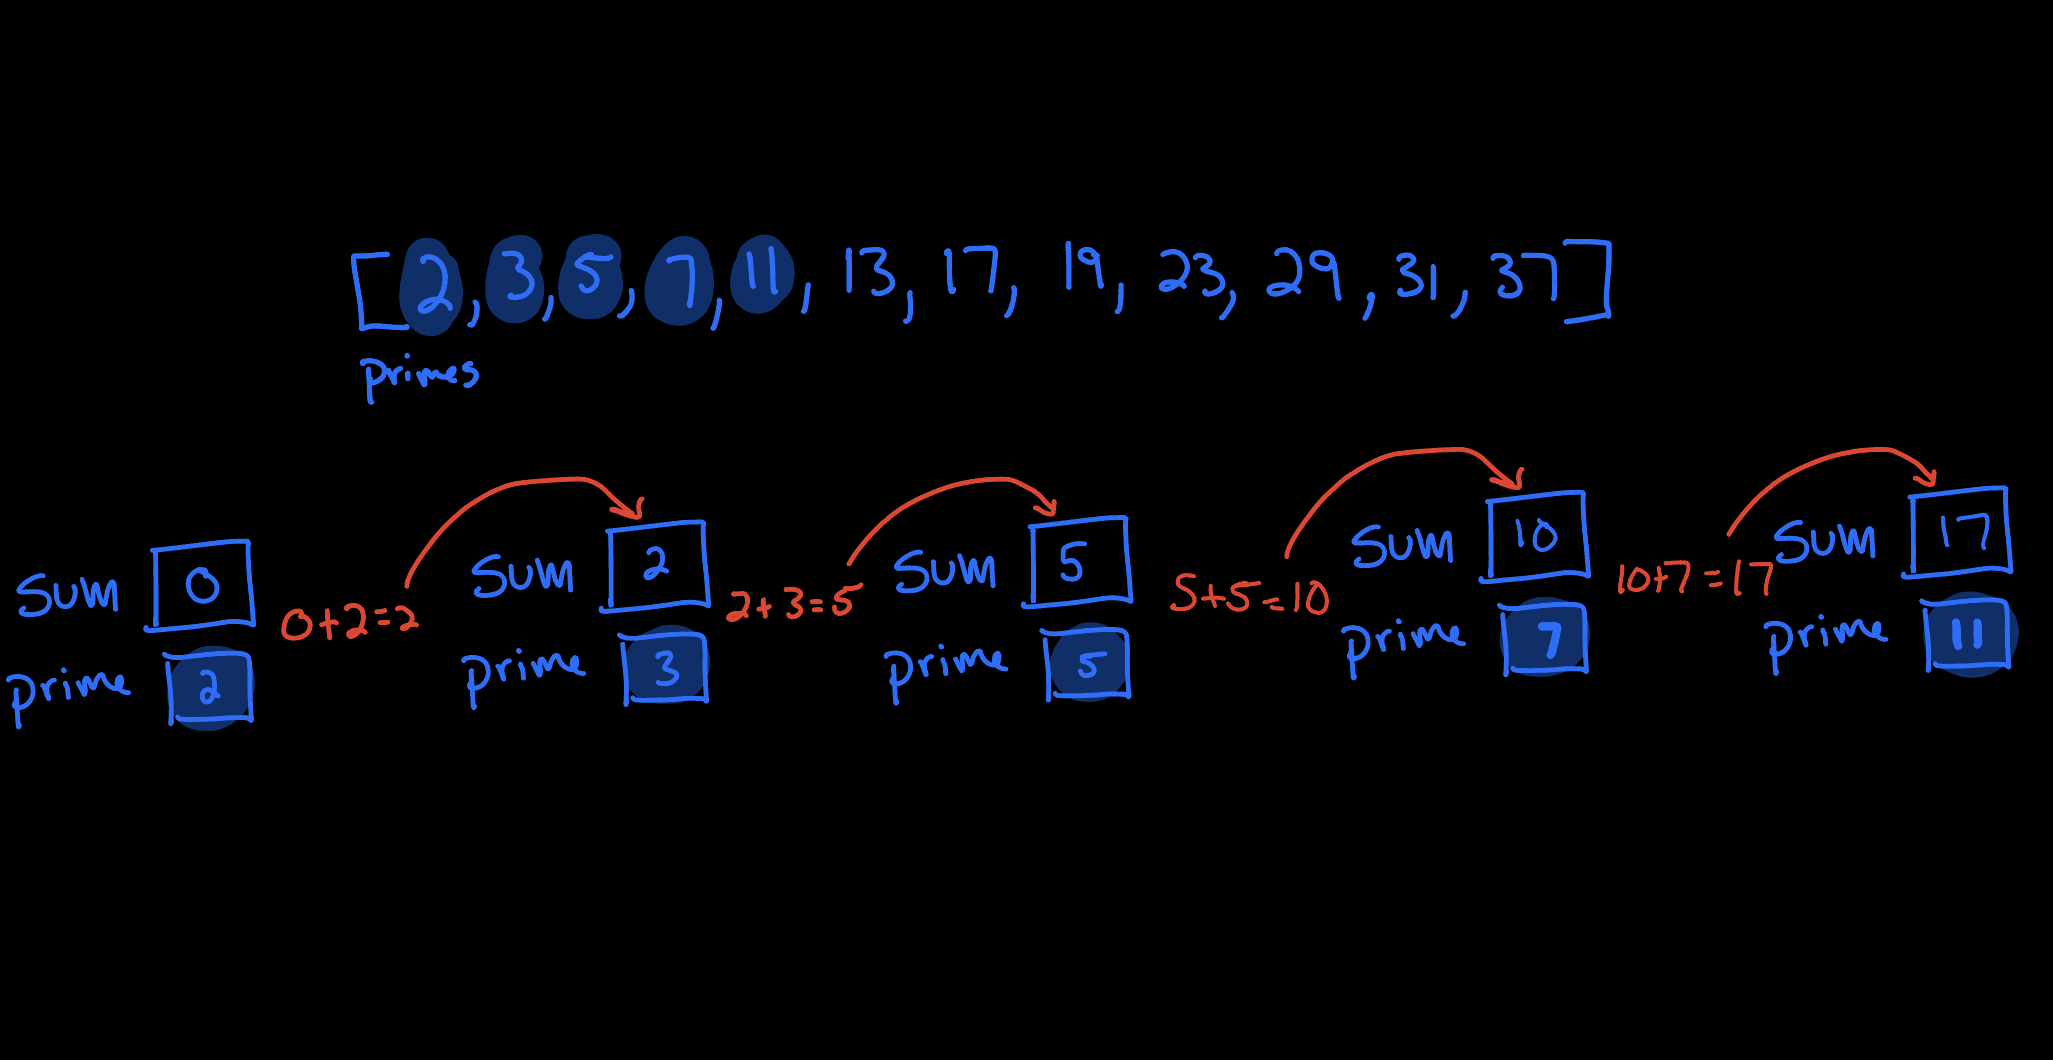 [2, 3, 5, 7, 11, 13, 17, 19, 23, 29, 31, 37]
primes
sum 0
prime 2
0+2=2
sum 2
prime 3
2+3=5
sum 5
prime 5
5+5=10
sum 10
prime 7
10+7=17
sum 17
prime 11